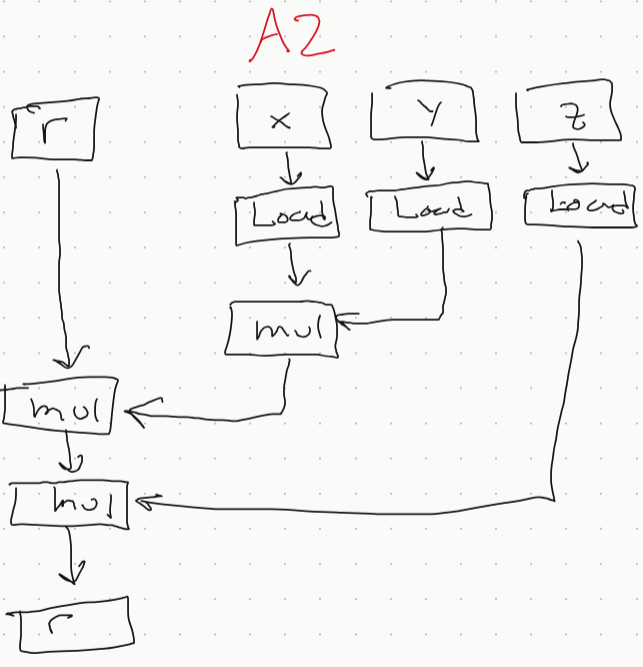 A2
r x y z
Load Load Load
mul
mul
mul
r